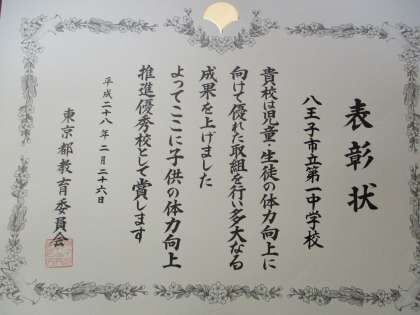 表彰状
八王子市立第一中学校
貴校は児童・生徒の体力向上に
向けて優れた取組を行い多大なる
成果を上げました
よってここに子供の体力向上
推進優秀校として賞します
平成二十八年二月二十六日
東京都教育委員会